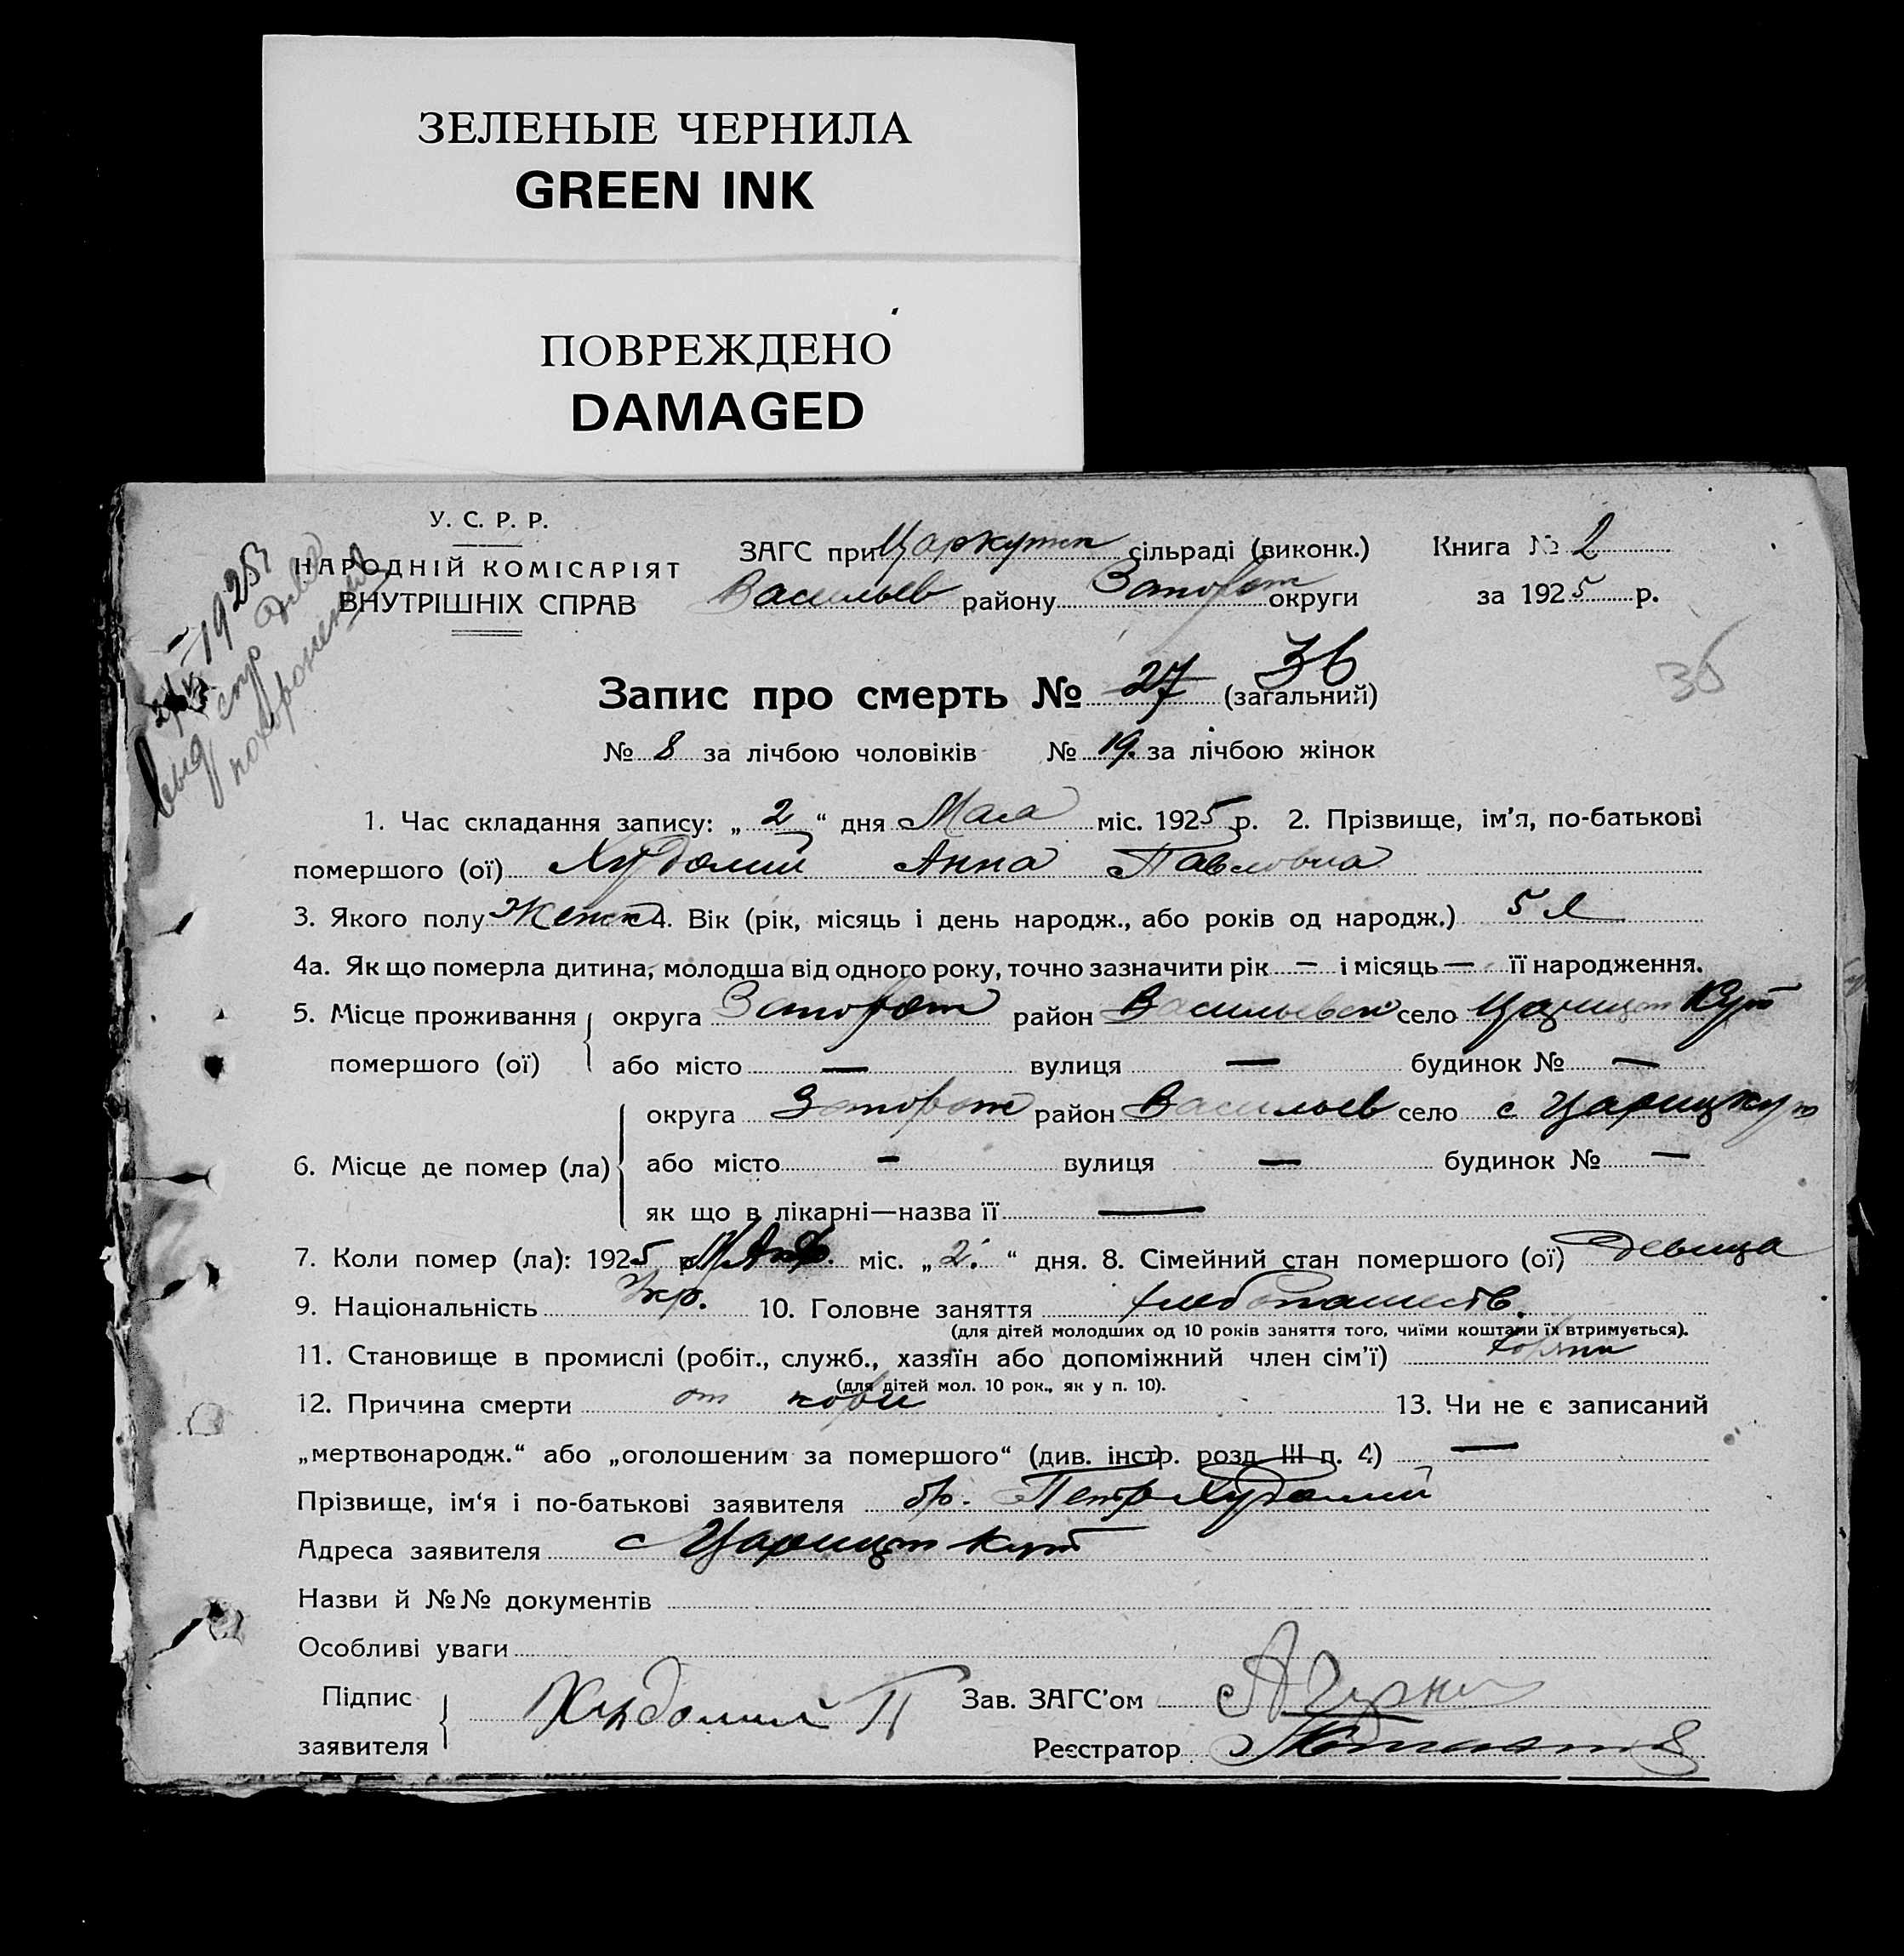 ЗЕЛЕНЫЕ ЧЕРНИЛА
GREEN INK
ПОВРЕЖДЕНО
DAMAGED
У. С. Р. Р.
НАРОДНІЙ КОМІСАРІЯТ
ВНУТРІШНІХ СПРАВ
ЗАГС при Царкутск сільраді (виконк.) Книга № 2
Васильев району Запорож округи за 1925 р.
Запис про смерть № 27 36 (загальний)
36
№ 8 за лічбою чоловіків № 19. за лічбою жінок
1. Час складання запису: „ 2 “ дня Мая міс. 1925 р. 2. Прізвище, ім'я, по-батькові
помершого (ої) Худолий Анна Павловна
3. Якого полу Женск 4. Вік (рік, місяць і день народж., або років од народж.) 5 л
4а. Як що померла дитина, молодша від одного року, точно зазначити рік — і місяць — її народження.
5. Місце проживання округа Запорож район Васильевск село Царицын Кут
помершого (ої) або місто — вулиця — будинок № —
округа Запорож район Васильев село с Царицкут
6. Місце де помер (ла) або місто - вулиця — будинок № —
як що в лікарні—назва її —
7. Коли помер (ла): 1925 р. міс. „ 2. “ дня. 8. Сімейний стан помершого (ої) девица
9. Національність Укр. 10. Головне заняття хлебопашеств.
(для дітей молодших од 10 років заняття того, чиїми коштами їх втримується).
11. Становище в промислі (робіт., служб., хазяїн або допоміжний член сім'ї)
(для дітей мол. 10 рок., як у п. 10).
12. Причина смерти от кори 13. Чи не є записаний
„мертвонародж.“ або „оголошеним за помершого“ (див. інстр. розд III п. 4) —
Прізвище, ім'я і по-батькові заявителя бр. Петр Худолий
Адреса заявителя с Царицын Кут
Назви й №№ документів
Особливі уваги
Підпис Зав. ЗАГС'ом
заявителя Худолий П
Реєстратор